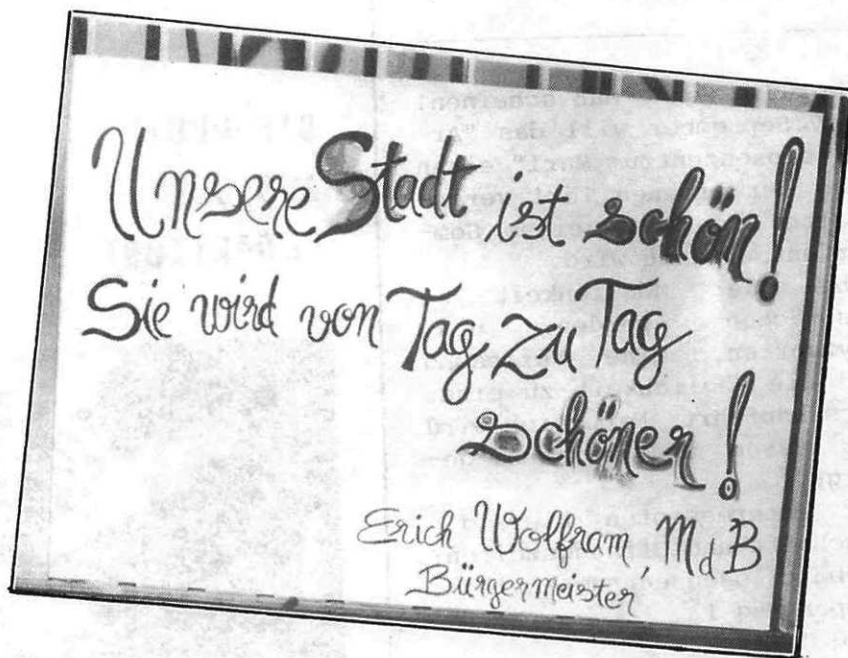 Unsere Stadt ist schön!
Sie wird von Tag zu Tag
schöner!
Erich Wolfram, MdB
Bürgermeister